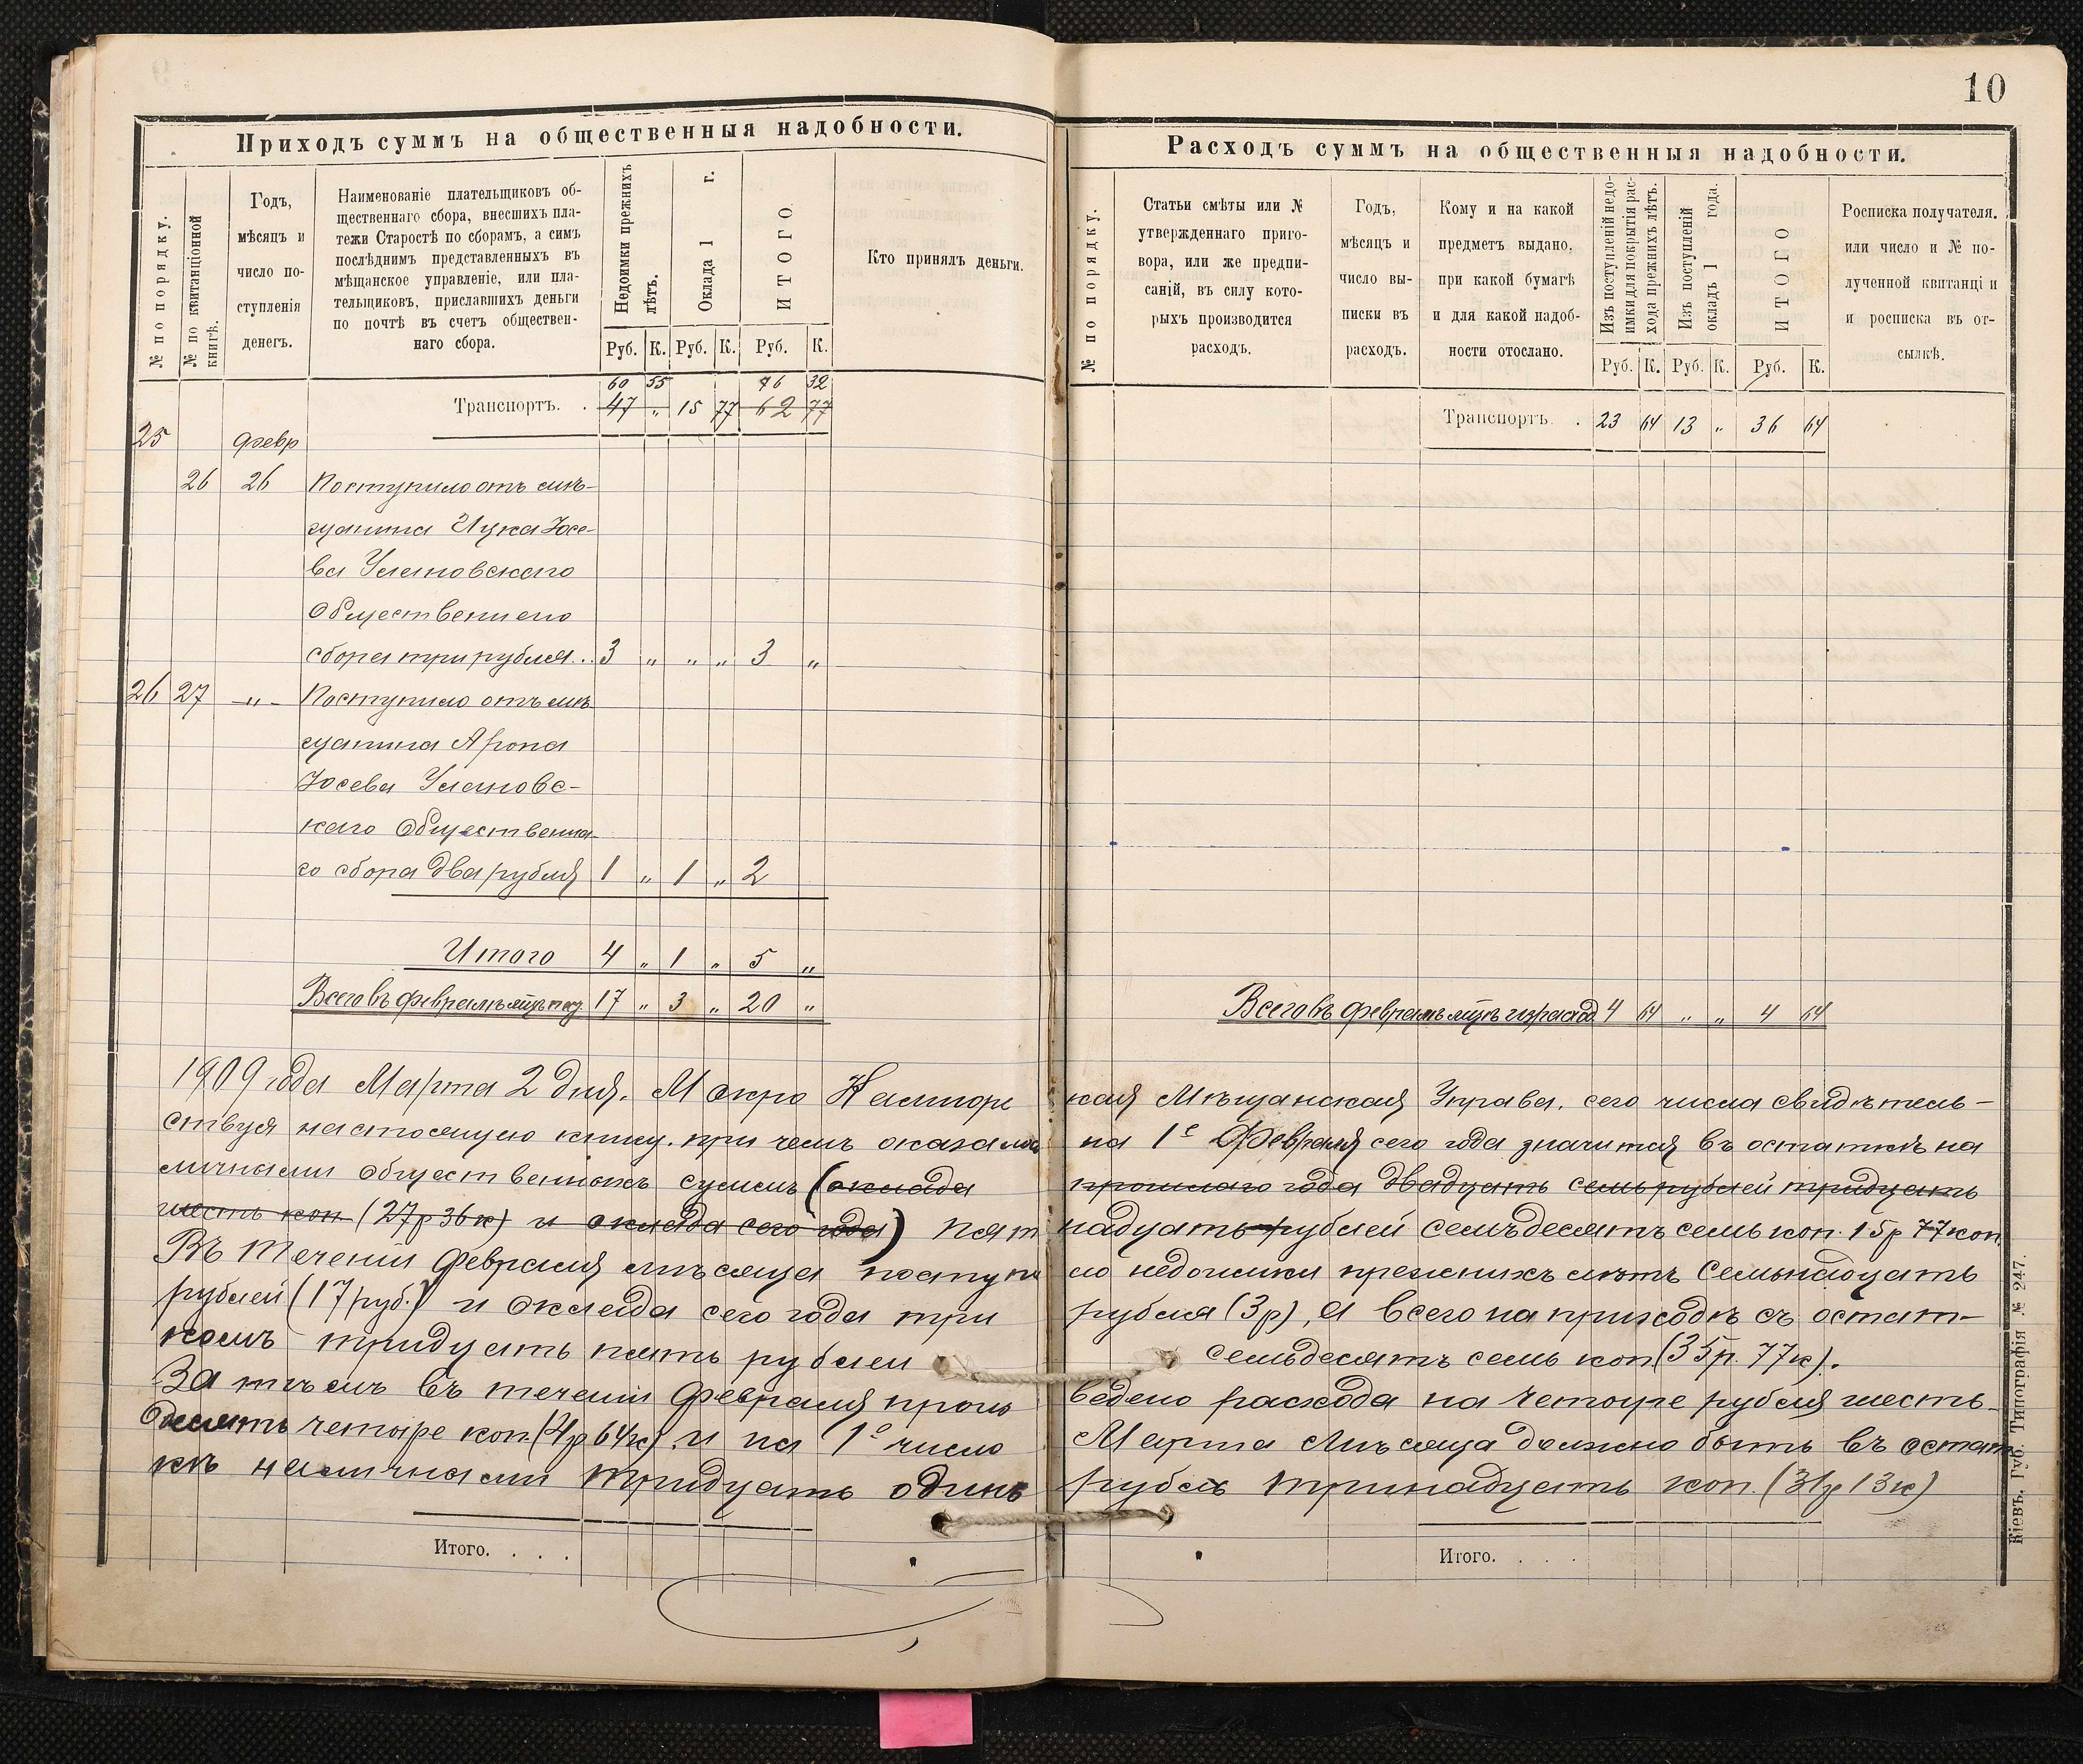 10
Приходъ суммъ на общественныя надобности.
№ по порядку.
№ по квитанціонной книгѣ.
Годъ,
мѣсяцъ и
число по-
ступленія
денегъ.
Наименованіе плательщиковъ об-
щественнаго сбора, внесшихъ пла-
тежи Старостѣ по сборамъ, а симъ
послѣднимъ представленныхъ въ
мѣщанское управленіе, или пла-
тельщиковъ, приславшихъ деньги
по почтѣ въ счетъ обществен-
наго сбора.
Недоимки прежнихъ лѣтъ.
Оклада 1 г.
ИТОГО.
Кто принялъ деньги.
Руб. К. Руб. К. Руб. К.
60 55 76 32
Транспортъ. . 47 „ 15 77 62 77
25 февр
26 26 Поступило отъ мѣ-
щанина Ицка Іосе-
ва Улановскаго
Общественнаго
сбора три рубля.. 3 „ „ „ 3 „
26 27 -„- Поступило отъ мѣ
щанина Арона
Іосева Улановс-
каго Общественна-
го сбора два рубля 1 „ 1 „ 2
Итого 4 „ 1 „ 5 „
Всего въ февралѣ мцѣ 17 „ 3 „ 20 „
Расходъ суммъ на общественныя надобности.
№ по порядку.
Статьи смѣты или №
утвержденнаго приго-
вора, или же предпи-
саній, въ силу кото-
рыхъ производится
расходъ.
Годъ,
мѣсяцъ и
число вы-
писки въ
расходъ.
Кому и на какой
предметъ выдано,
при какой бумагѣ
и для какой надоб-
ности отослано.
Изъ поступленій недо-
имки для покрытія рас-
хода прежнихъ лѣтъ.
Изъ поступленій
окладъ 1 года.
ИТОГО
Росписка получателя.
или число и № по-
лученной квитанціи
и росписка въ от-
сылкѣ.
Руб. К. Руб. К. Руб. К.
Транспортъ . 23 64 13 „ 36 64
Всего въ февралѣ мцѣ израсход 4 64 „ „ 4 64
1909 года Марта 2 дня. Мокро Калигорс кая Мѣщанская Управа. сего числа свидѣтель-
ствуя настоящую книгу. при чемъ оказалось на 1е Февраля сего года значится въ остаткѣ на
личными общественныхъ суммъ (оклада прошлаго года двадцать семь рублей тридцать
шесть коп (27р 36к) и оклада сего года) пят надцать рублей семьдесятъ семь коп. 15р 77коп.
Въ теченіи февраля мѣсяца поступи ло недоимки прежнихъ лѣтъ Семьнадцать
рублей (17 руб.) и Оклада сего года три рубля (3р), а всего на приходѣ съ остат-
комъ тридцать пять рублей семьдесятъ семь коп (35р. 77к).
За тѣмъ въ теченіи февраля произ ведено расхода на четыре рубля шесть-
десятъ четыре коп. (4р 64к). и на 1е число Марта мѣсяца должно быть въ остат
кѣ наличными тридцать одинъ рубль тринадцать коп. (31р 13к)
Итого. . . .
Итого. . . .
Кіевъ. Губ. Типографія № 247.